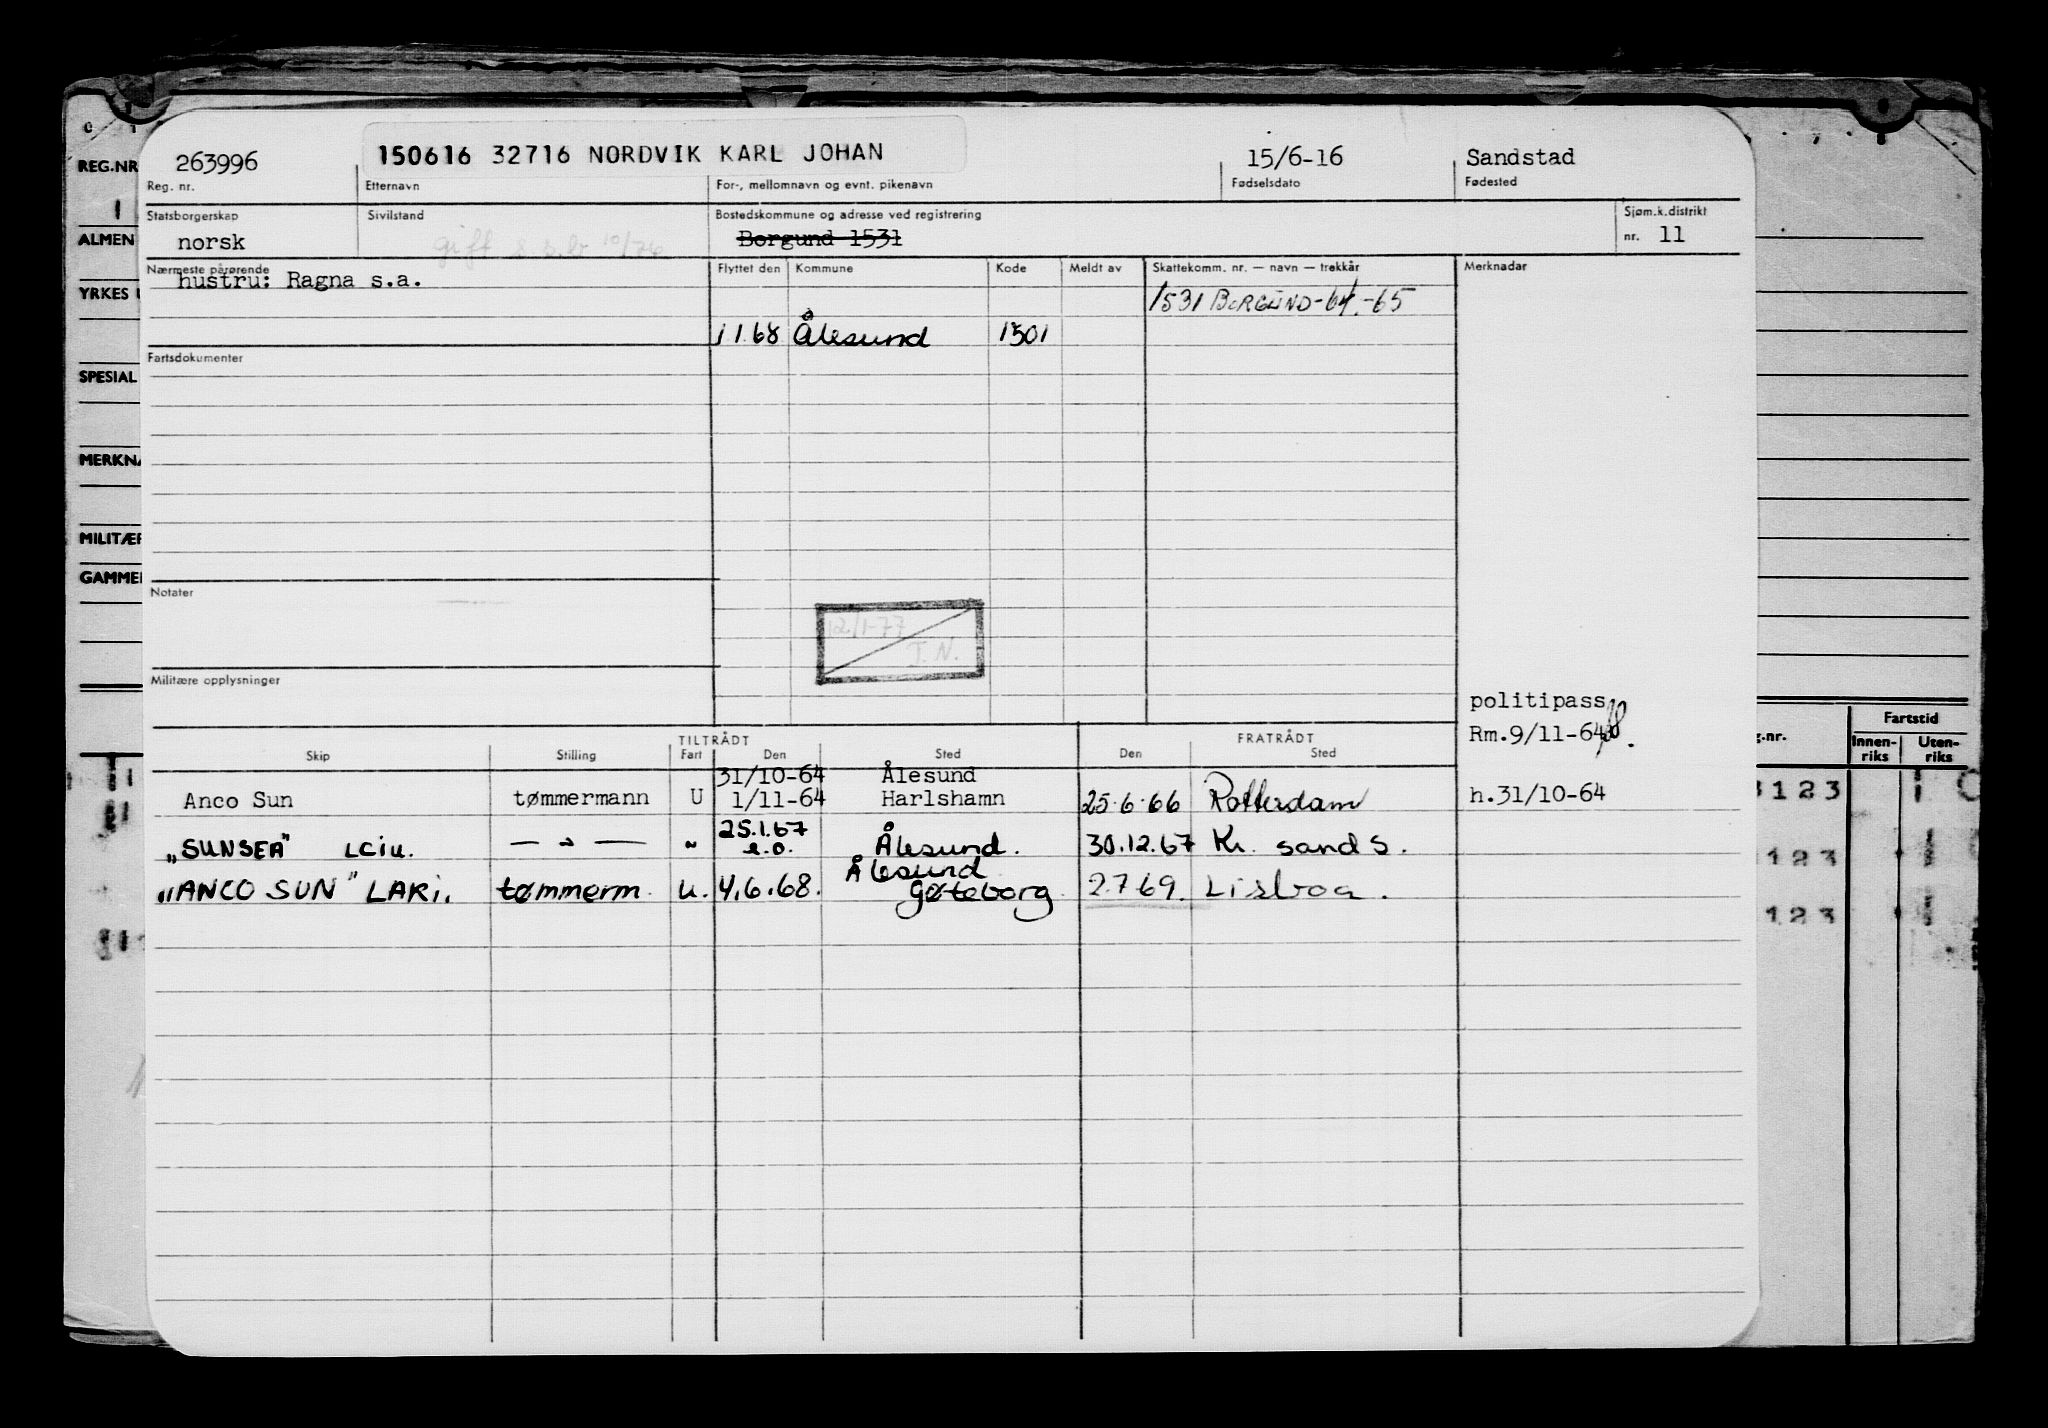 REG.NR
ALMEN
YRKES
SPESIAL
MERKNA
MILITÆR
GAMMEL
263996 150616 32716 NORDVIK KARL JOHAN 15/6-16 Sandstad
Reg. nr. Etternavn For-, mellomnavn og evnt. pikenavn Fødselsdato Fødested
Statsborgerskap Sivilstand Bostedskommune og adresse ved registrering Sjøm.k.distrikt
norsk gift 10/76 Borgund 1531 nr. 11
Nærmeste pårørende Flyttet den Kommune Kode Meldt av Skattekomm. nr. — navn — trekkår Merknadar
hustru: Ragna s.a.
1531 BORGUND-64.-65
1 1.68 Ålesund 1501
Fartsdokumenter
Notater
12/1-77
J. N.
Militære opplysninger
politipass
Rm.9/11-64
TILTRÅDT FRATRÅDT
Skip Stilling Fart Den Sted Den Sted
31/10-64 Ålesund
Anco Sun tømmermann U 1/11-64 Harlshamn 25.6.66 Rotterdam h.31/10-64
25.1.67
„SUNSEA" LCIU. — " — " e.o. Ålesund. 30.12.67 Kr. sand S.
Ålesund
„ANCO SUN" LARI. tømmerm. u. 4.6.68. Gøteborg 2.7 69. Lisboa.
g.nr. Fartstid
Innen-riks Uten-riks
3123
123
123